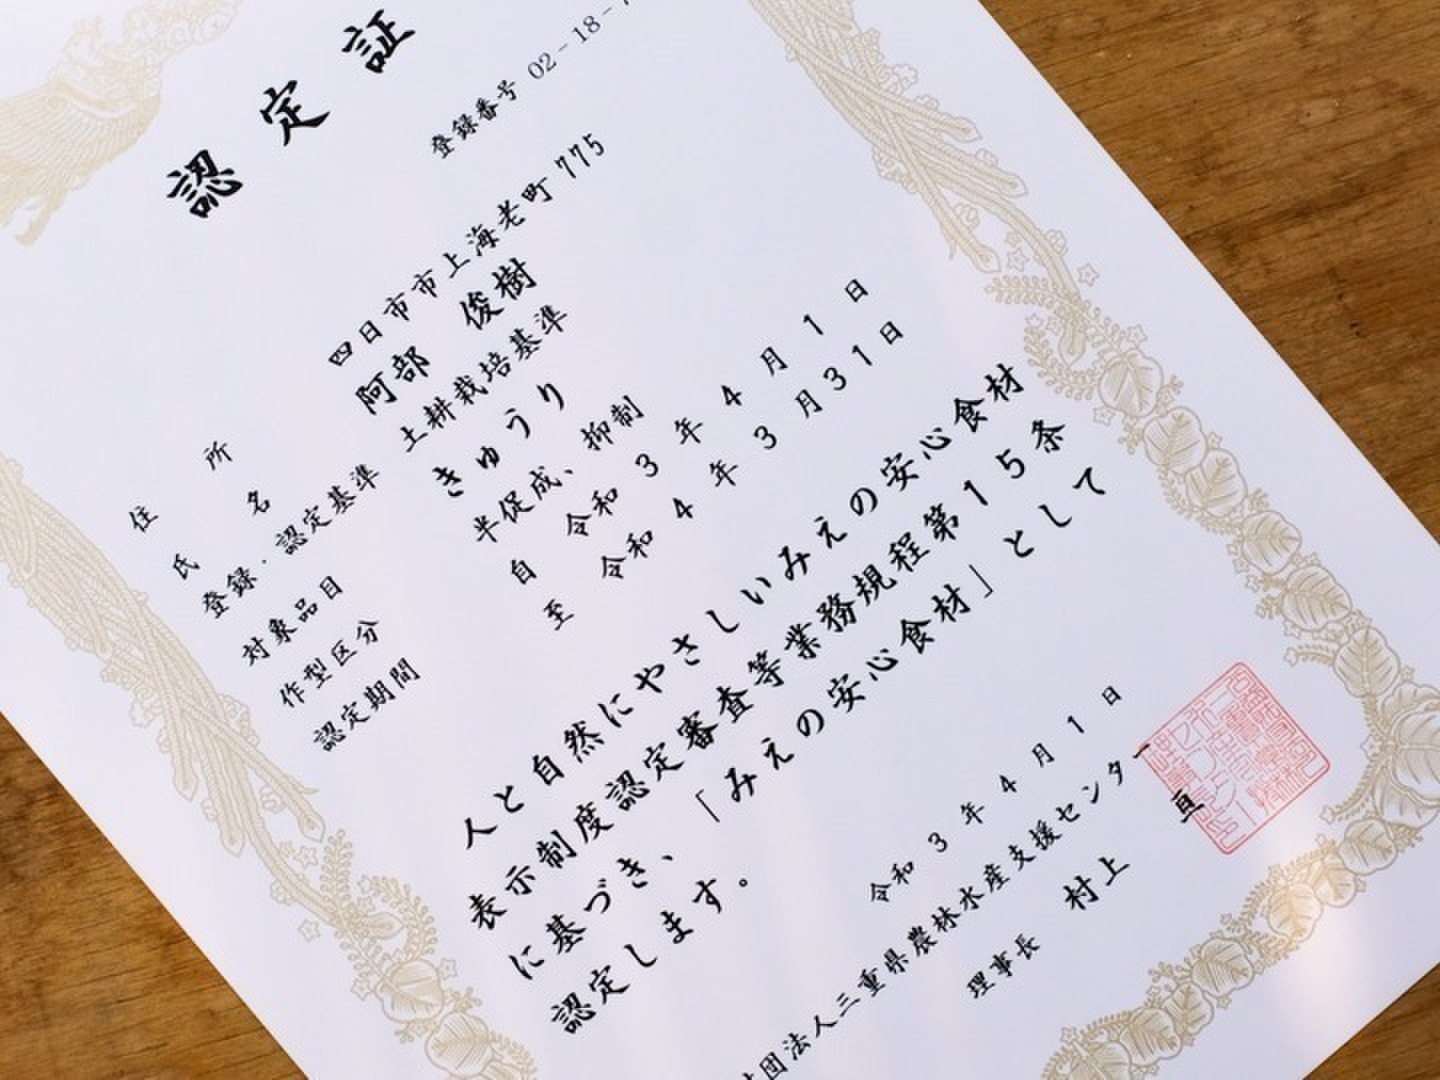 認定証
登録番号 02-18-
住所 四日市市上海老町775
氏名 阿部 俊樹
登録・認定基準 土耕栽培基準
対象品目 きゅうり
作型区分 半促成、抑制
認定期間 自 令和3年4月1日
至 令和4年3月31日
人と自然にやさしいみえの安心食材
表示制度認定審査等業務規程第15条
に基づき、「みえの安心食材」として
認定します。
令和3年4月1日
団法人三重県農林水産支援センター
理事長 村上 亘